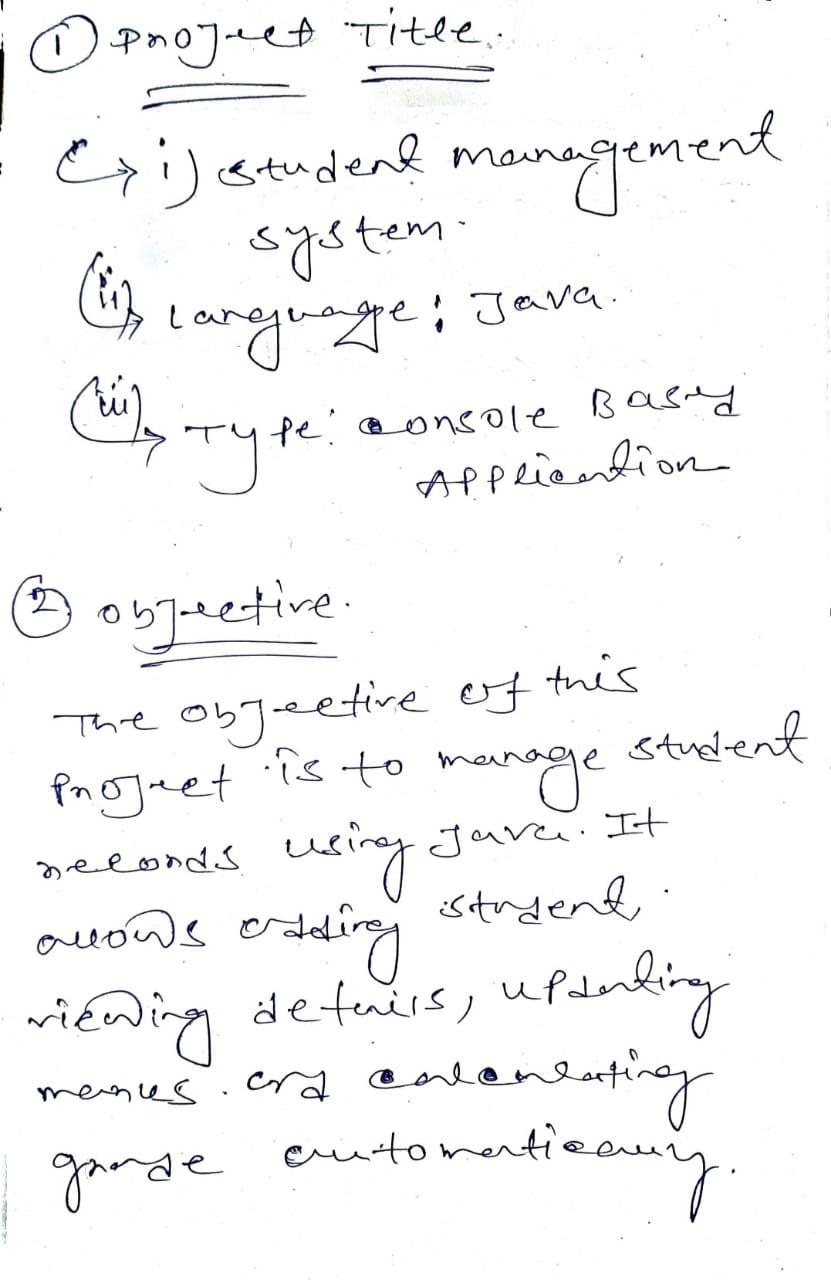 ① Project Title.
↳ i) student management
system.
(ii) Language: Java.
(iii) Type: console Based
Application
② objective.
The objective of this
project is to manage student
records using Java. It
allows adding student,
viewing details, updating
marks. and calculating
grade automatically.